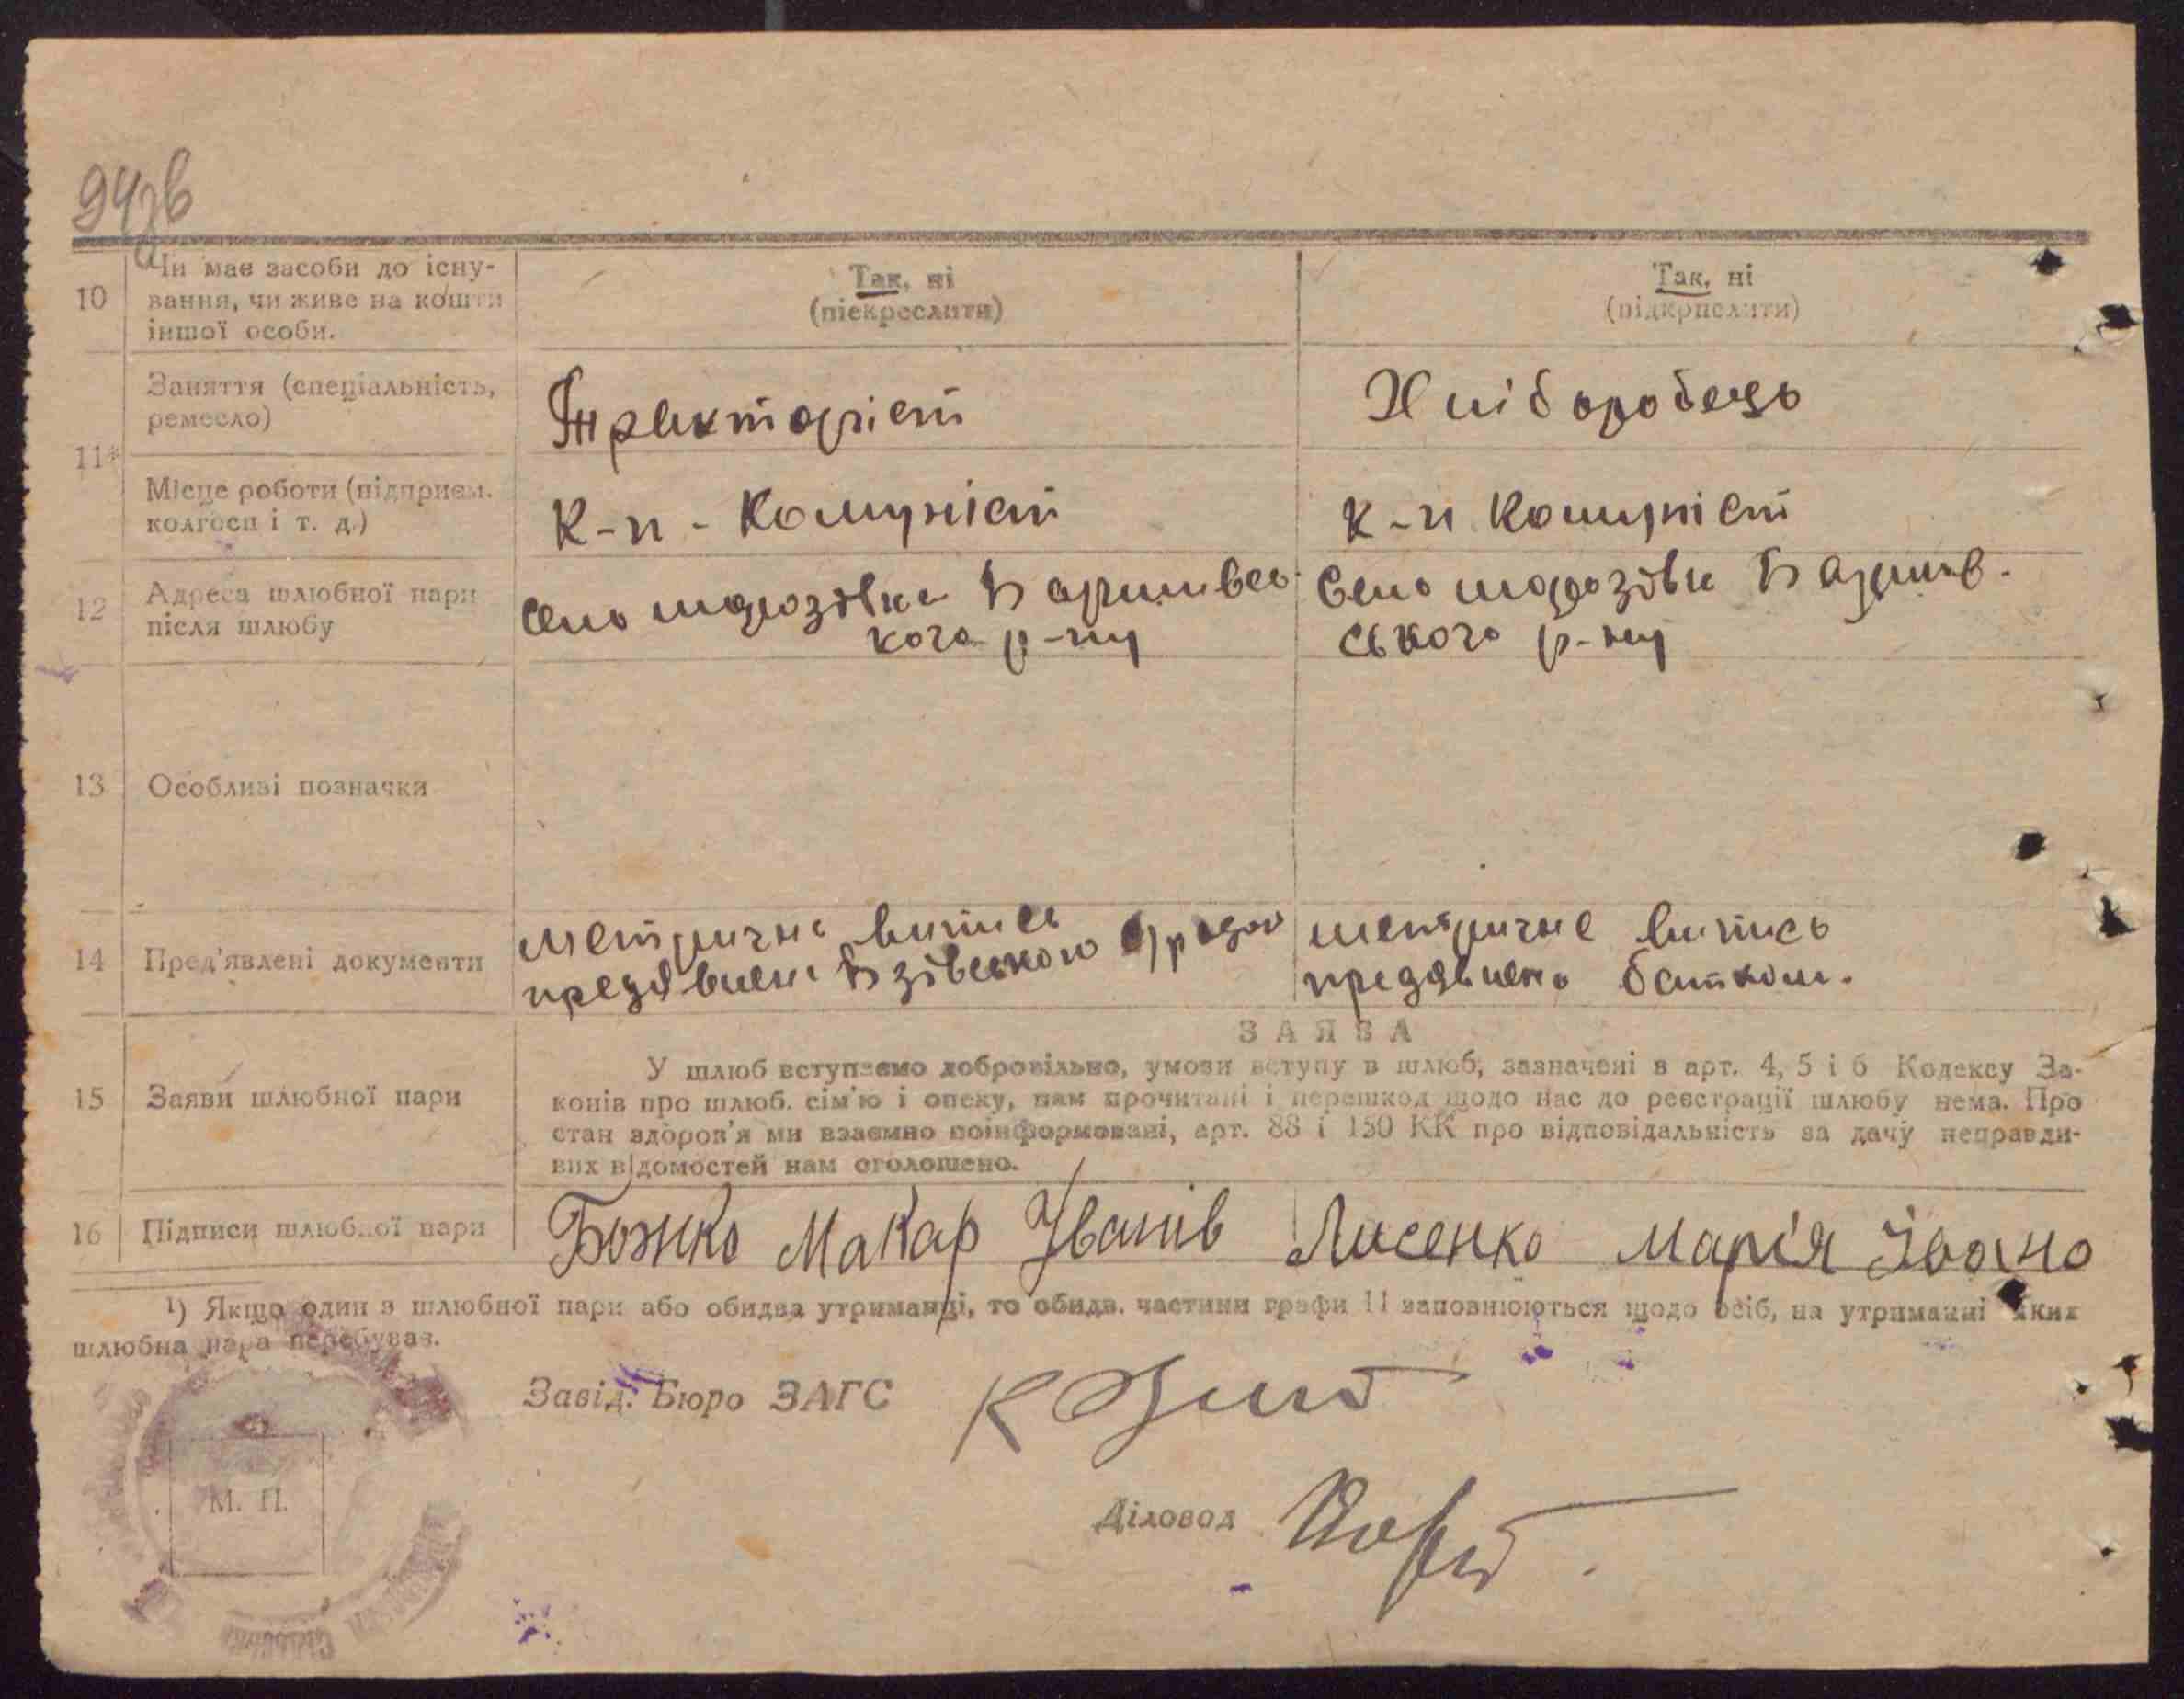 94зв
10
Чи має засоби до існу-
вання, чи живе на кошти
іншої особи.
Так, ні
(піекреслити)
Так, ні
(підкрислити)
11*
Заняття (спеціальність,
ремесло)
Тракторіст
Хліборобець
Місце роботи (підприєм.
колгосп і т. д.)
К-п - Комуніст
К-п Комуніст
12
Адреса шлюбної пари
після шлюбу
Село Морозівка Баришевсь-
кого р-ну
Село Морозівка Баришев-
ського р-ну
13
Особливі позначки
14
Пред'явлені документи
Метричне випись
предявлене
Метричне випись
предявлено батком.
15
Заяви шлюбної пари
ЗАЯВА
У шлюб вступаємо добровільно, умови вступу в шлюб, зазначені в арт. 4, 5 і 6 Кодексу За-
конів про шлюб. сім'ю і опеку, нам прочитані і перешкод щодо нас до реєстрації шлюбу нема. Про
стан здоров'я ми взаємно поінформовані, арт. 88 і 130 КК про відповідальність за дачу неправди-
вих відомостей нам оголошено.
16
Підписи шлюбної пари
Божко Макар Іванів
Лисенко Марія Івано
¹) Якщо один з шлюбної пари або обидва утриманці, то обидв. частини графи 11 заповнюються щодо осіб, на утриманні яких
шлюбна пара перебуває.
Завід. Бюро ЗАГС
М. П.
Діловод